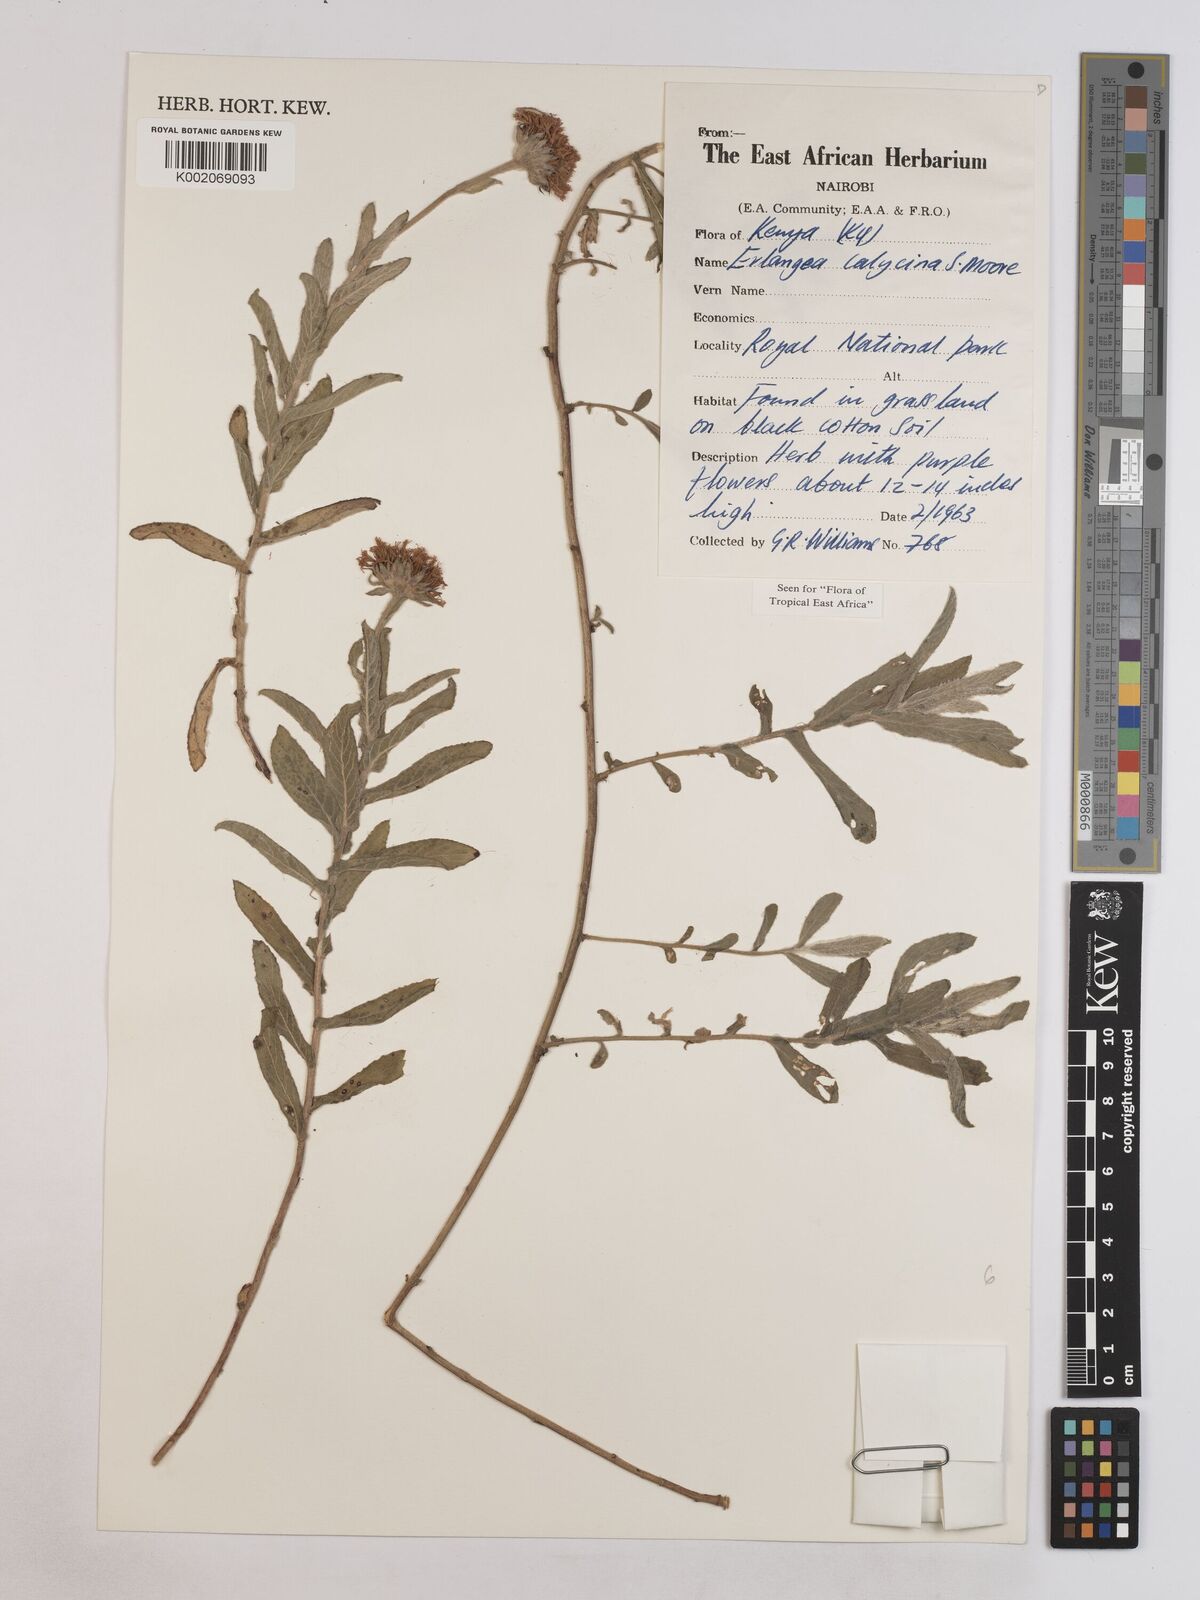 HERB. HORT. KEW.
ROYAL BOTANIC GARDENS KEW
K002069093
From:—
The East African Herbarium
NAIROBI
(E.A. Community; E.A.A. & F.R.O.)
Flora of Kenya (K4)
Name Erlangea calycina S. Moore
Vern Name
Economics
Locality Royal National park
Alt.
Habitat Found in grassland
on black cotton Soil
Description Herb with purple
flowers about 12-14 inches
high. Date 2/1963
Collected by G.R. Williams No. 768
Seen for "Flora of
Tropical East Africa"
6
inches
centimeters
Don Williams
M000866
Kew
Royal Botanic Gardens
copyright reserved
0 1 2 3 4 5 6 7 8 9 10
cm